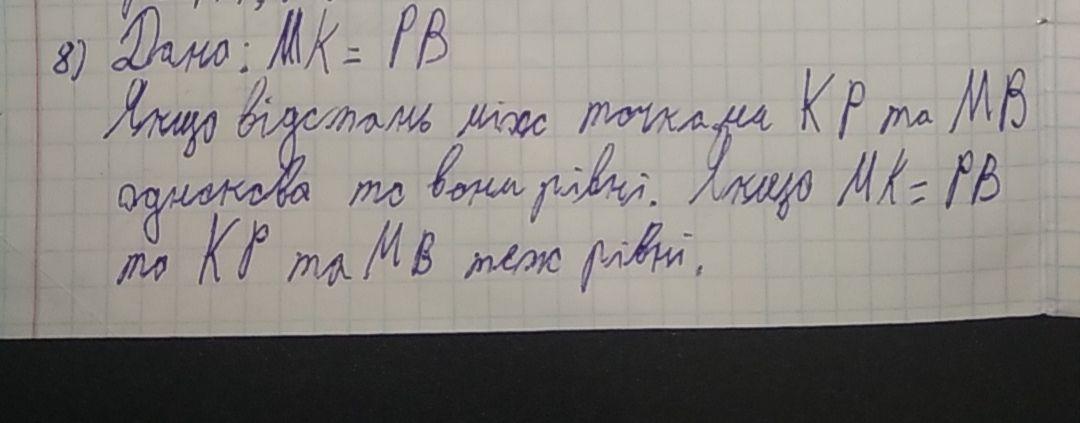 8) Дано: МК = РВ
Якщо відстань між точками КР та МВ
однакова то вони рівні. Якщо МК = РВ
то КР та МВ теж рівні.